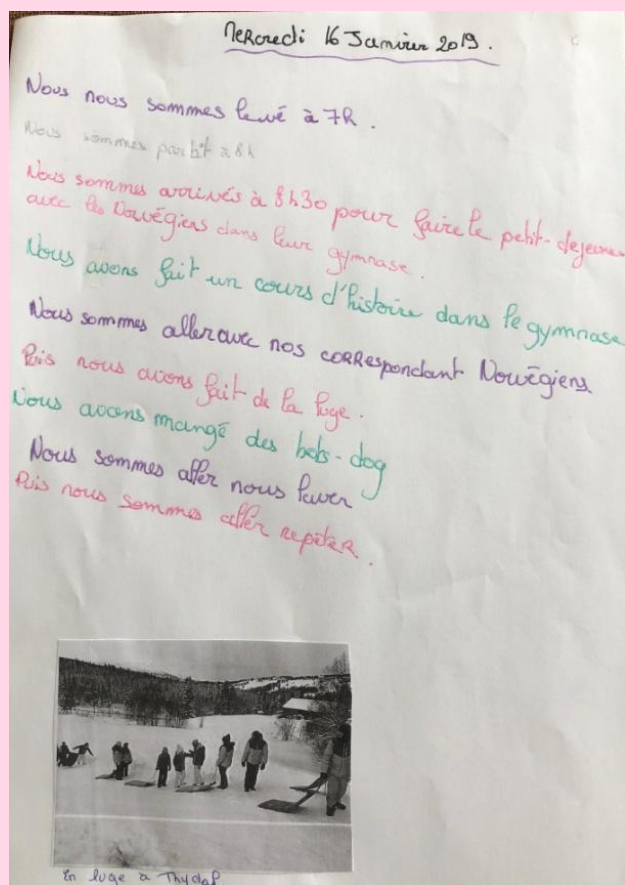 Mercredi 16 Janvier 2019.
Nous nous sommes levé à 7h.
Nous sommes partit à 8h
Nous sommes arrivés à 8h30 pour faire le petit-dejeuner
avec les Norvégiens dans leur gymnase.
Nous avons fait un cours d'histoire dans le gymnase
Nous sommes aller avec nos correspondant Norvégiens
Puis nous avons fait de la luge.
Nous avons mangé des hots-dog
Nous sommes aller nous laver
Puis nous sommes aller repéter.
En luge à Thydal